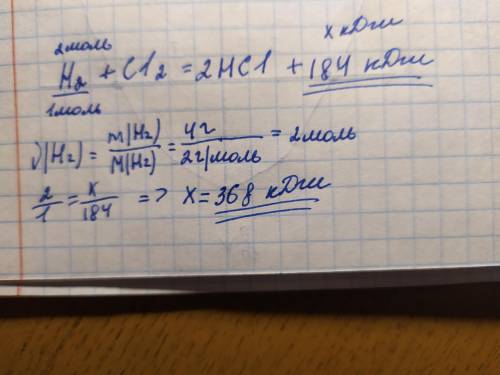 2моль x кДж
H₂ + Cl₂ = 2HCl + 184 кДж
1моль
ν(H₂) = m(H₂)/M(H₂) = 4г/2г/моль = 2моль
2/1 = x/184 => x = 368 кДж